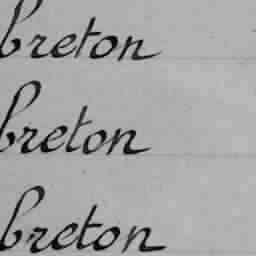 breton
breton
breton